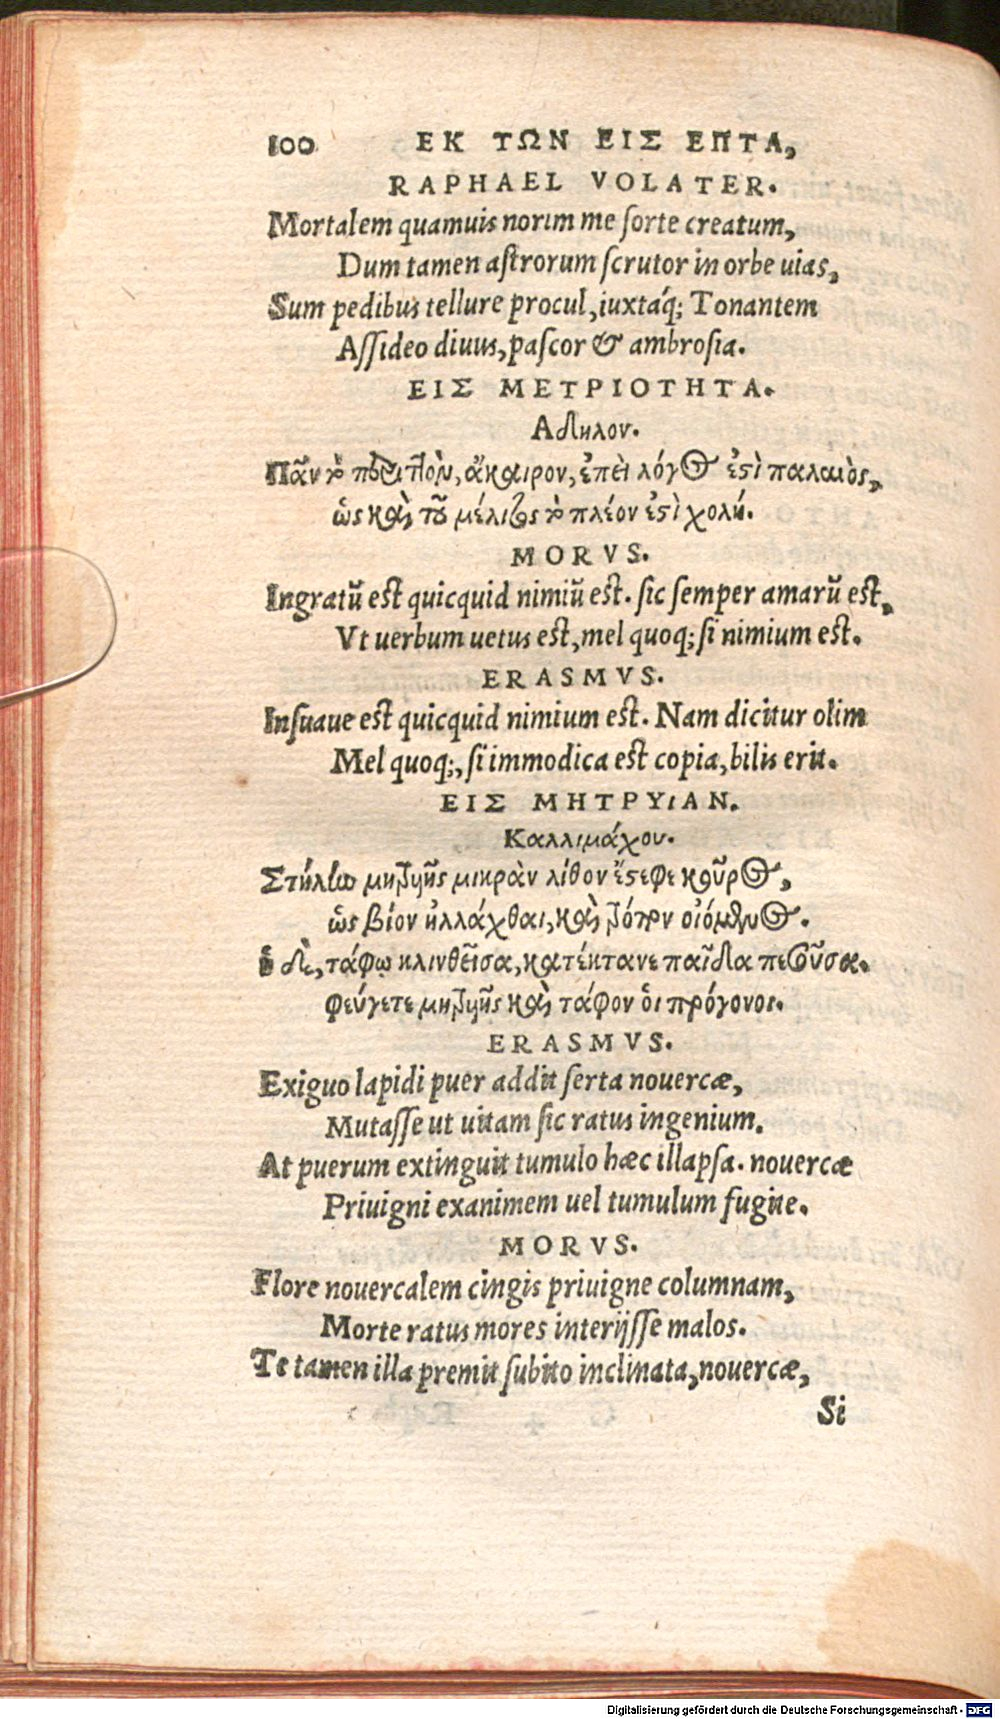 100 ΕΚ ΤΩΝ ΕΙΣ ΕΠΤΑ,
RAPHAEL VOLATER.
Mortalem quamuis norim me ſorte creatum,
Dum tamen aſtrorum ſcrutor in orbe uias,
Sum pedibus tellure procul, iuxtáq; Tonantem
Aſſideo diuus, paſcor & ambroſia.
ΕΙΣ ΜΕΤΡΙΟΤΗΤΑ.
Αδηλον.
Πᾶν τὸ περιττὸν, ἄκαιρον, ἐπεὶ λόγος ἐστὶ παλαιὸς,
ὡς καὶ τοῦ μέλιτος τὸ πλέον ἐστὶ χολή.
MORVS.
Ingratū eſt quicquid nimiū eſt. ſic ſemper amarū eſt,
Vt uerbum uetus eſt, mel quoq; ſi nimium eſt.
ERASMVS.
Inſuaue eſt quicquid nimium eſt. Nam dicitur olim
Mel quoq;, ſi immodica eſt copia, bilis erit.
ΕΙΣ ΜΗΤΡΥιΑΝ.
Καλλιμάχου.
Στήλην μητρυιῆς μικρὰν λίθον ἔστεφε κοῦρος,
ὡς βίον ἠλλάχθαι, καὶ τρόπον οἰόμενος.
ἡ δὲ, τάφῳ κλινθεῖσα, κατέκτανε παῖδα πεσοῦσα.
φεύγετε μητρυιῆς καὶ τάφον ὁι πρόγονοι.
ERASMVS.
Exiguo lapidi puer addit ſerta nouercæ,
Mutaſſe ut uitam ſic ratus ingenium.
At puerum extinguit tumulo hæc illapſa. nouercæ
Priuigni exanimem uel tumulum fugite.
MORVS.
Flore nouercalem cingis priuigne columnam,
Morte ratus mores interijſſe malos.
Te tamen illa premit ſubito inclinata, nouercæ,
Si
Digitalisierung gefördert durch die Deutsche Forschungsgemeinschaft - DFG